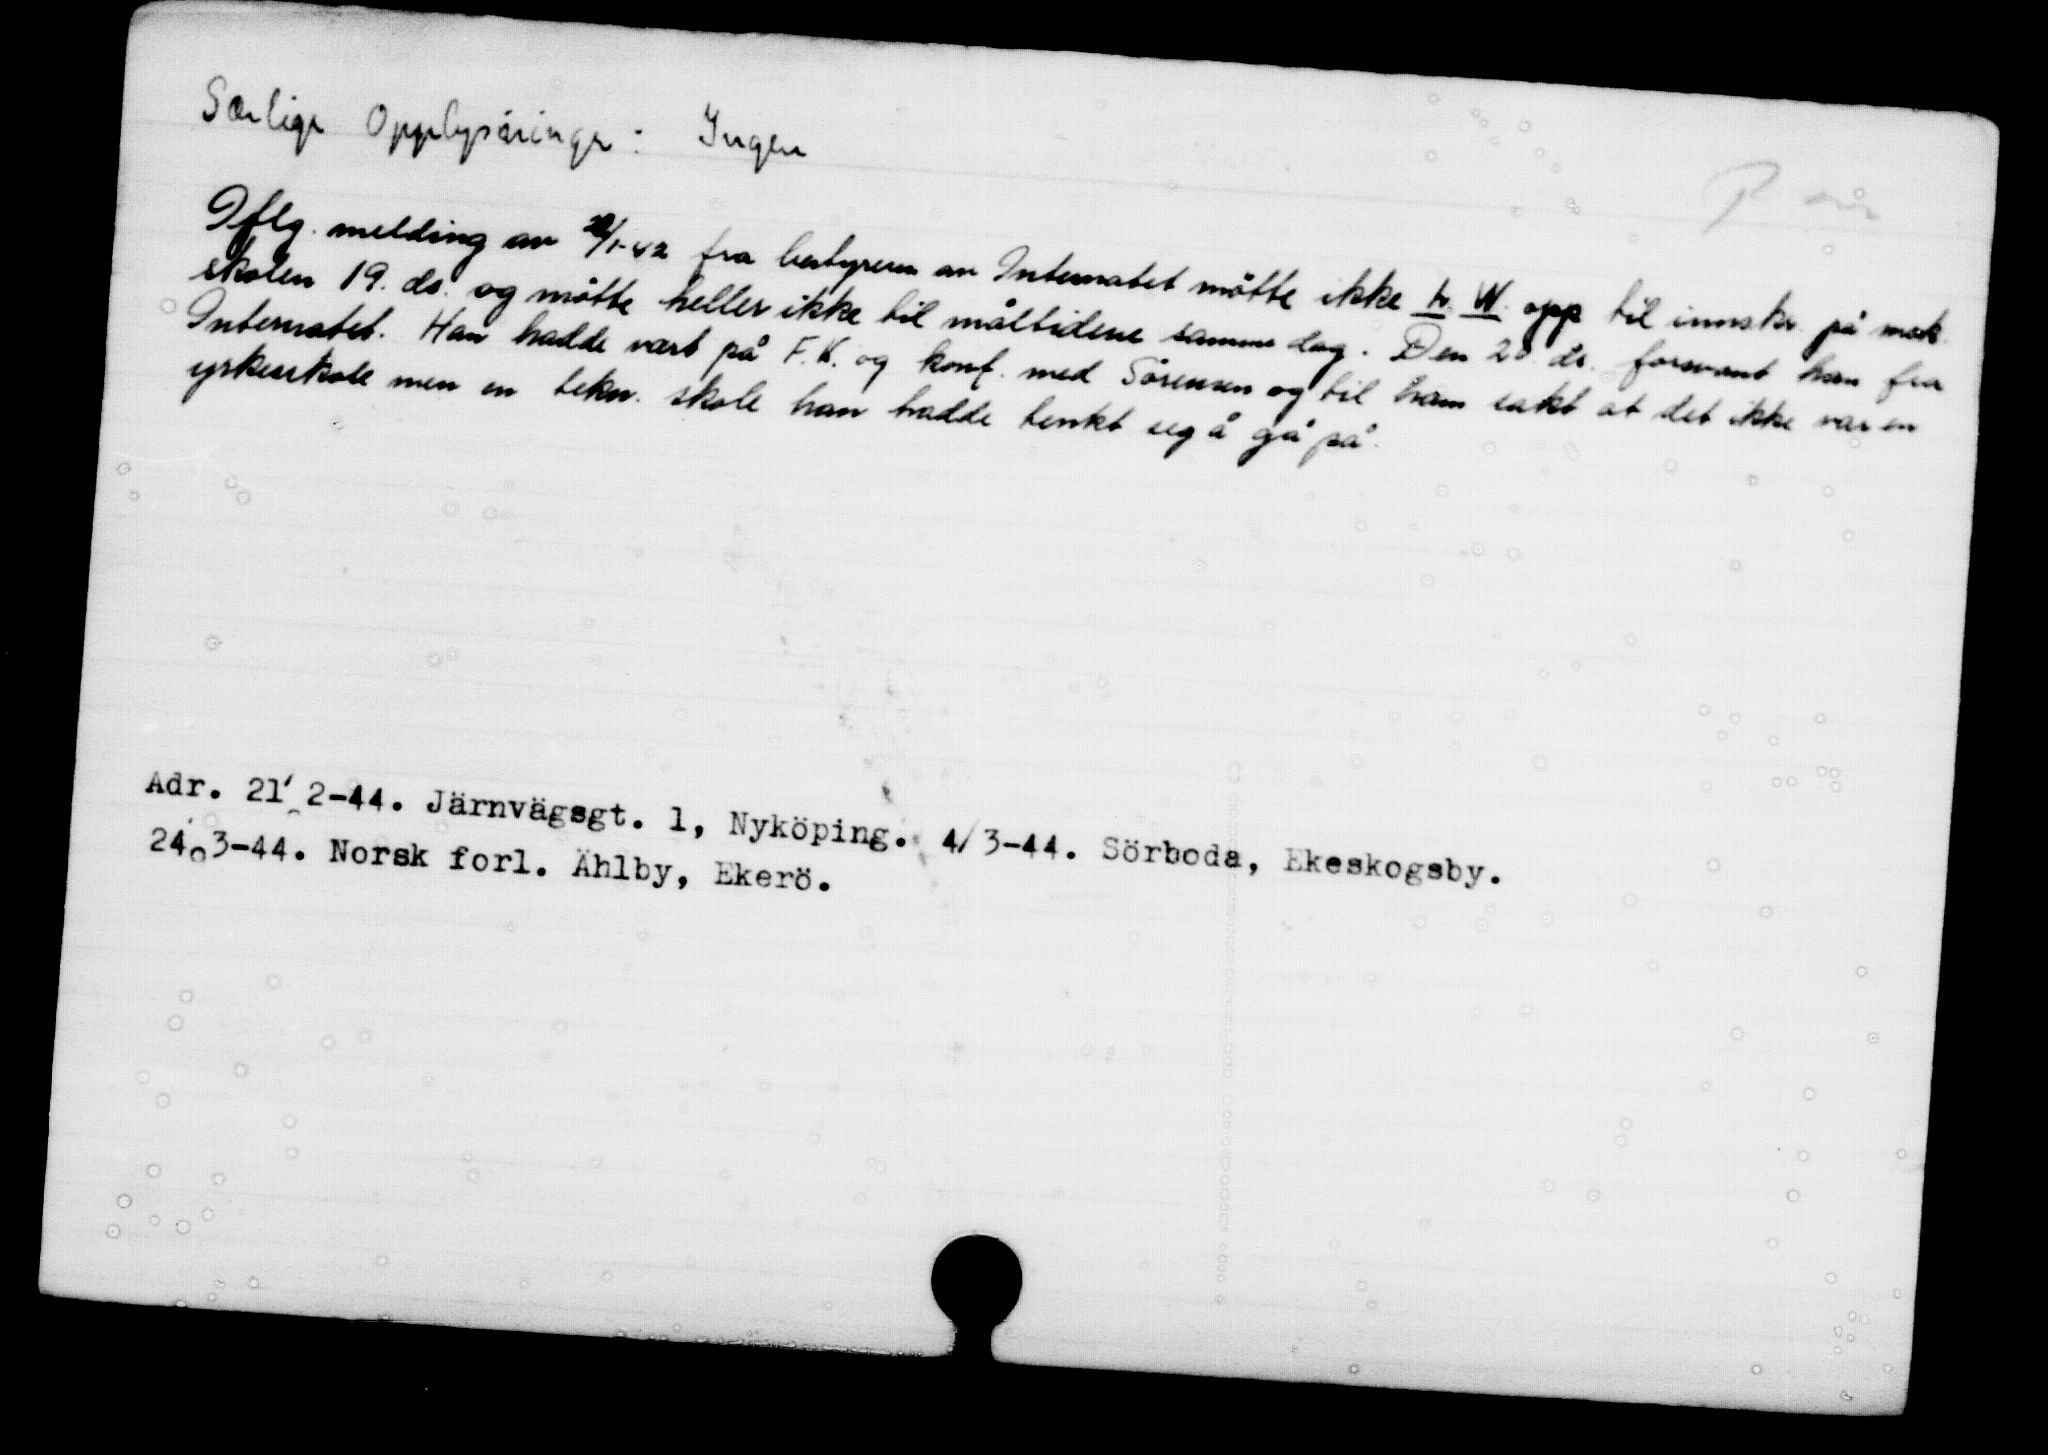 Særlige Opplysninger: Ingen
Iflg. melding av 22/1-42 fra bestyreren av Internatet møtte ikke W. opp til innskr. på mek.
skolen 19. ds. og møtte heller ikke til måltidene samme dag. Den 20. ds. forsvant han fra
Internatet. Han hadde vært på F.K. og konf. med Sörensen og til ham sakt at det ikke var en
yrkesskole men en tekn. skole han hadde tenkt seg å gå på.
Adr. 21/2-44. Järnvägsgt. 1, Nyköping. 4/3-44. Sörboda, Ekeskogsby.
24/3-44. Norsk forl. Ählby, Ekerö.